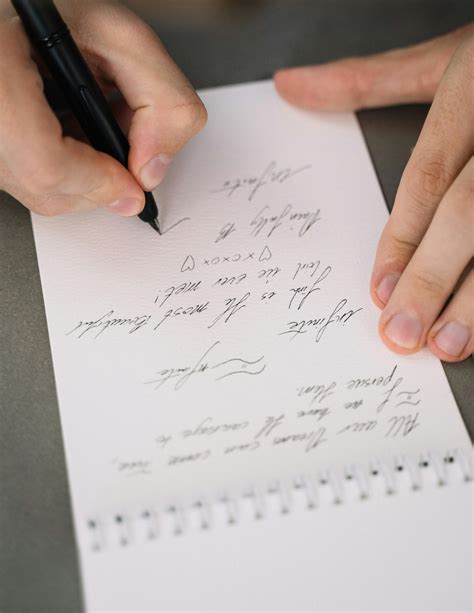 All our Dreams can come True,
If we have the courage to
persue them.
infinite
infinite
Ink is the most Beautiful
we ever met!
♡ xoxo ♡
infinite